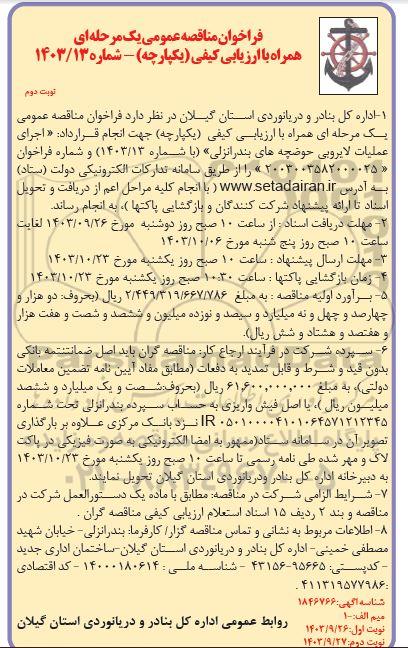 فراخوان مناقصه عمومی یک مرحله‌ای
همراه با ارزیابی کیفی (یکپارچه) – شماره ۱۴۰۳/۱۳
نوبت دوم
۱-اداره کل بنادر و دریانوردی استان گیلان در نظر دارد فراخوان مناقصه عمومی
یک مرحله ای همراه با ارزیابی کیفی (یکپارچه) جهت انجام قرارداد: « اجرای
عملیات لایروبی حوضچه های بندرانزلی» (با شماره ۱۴۰۳/۱۳) و شماره فراخوان
« ۲۰۰۳۰۰۳۵۸۲۰۰۰۰۲۵ » را از طریق سامانه تدارکات الکترونیکی دولت (ستاد)
به آدرس www.setadairan.ir ( با انجام کلیه مراحل اعم از دریافت و تحویل
اسناد تا ارائه پیشنهاد شرکت کنندگان و بازگشایی پاکتها )، به انجام رساند.
۲- مهلت دریافت اسناد : از ساعت ۱۰ صبح روز دوشنبه مورخ ۱۴۰۳/۰۹/۲۶ لغایت
ساعت ۱۰ صبح روز پنج شنبه مورخ ۱۴۰۳/۱۰/۰۶
۳- مهلت ارسال پیشنهاد : ساعت ۱۰ صبح روز یکشنبه مورخ ۱۴۰۳/۱۰/۲۳
۴- زمان بازگشایی پاکتها : ساعت ۱۰:۳۰ صبح روز یکشنبه مورخ ۱۴۰۳/۱۰/۲۳
۵- برآورد اولیه مناقصه : به مبلغ ۲/۴۴۹/۳۱۹/۶۶۷/۷۸۶ ریال (بحروف: دو هزار و
چهارصد و چهل و نه میلیارد و سیصد و نوزده میلیون و ششصد و شصت و هفت هزار
و هفتصد و هشتاد و شش ریال).
۶- سپرده شرکت در فرآیند ارجاع کار: مناقصه گران باید اصل ضمانتنتمه بانکی
بدون قید و شرط و قابل تمدید به دفعات (مطابق مفاد آیین نامه تضمین معاملات
دولتی)، به مبلغ ۶۱,۶۰۰,۰۰۰,۰۰۰ ریال (بحروف:شصت و یک میلیارد و ششصد
میلیون ریال )، یا اصل فیش واریزی به حساب سپرده بندرانزلی تحت شماره
IR ۰۵۰۱۰۰۰۰۴۱۰۱۰۶۴۵۷۱۲۱۲۳۴۵ نزد بانک مرکزی علاوه بر بارگذاری
تصویر آن در سامانه ستاد(ممهور به امضا الکترونیکی به صورت فیزیکی در پاکت
لاک و مهر شده طی نامه رسمی تا ساعت ۱۰ صبح روز یکشنبه مورخ ۱۴۰۳/۱۰/۲۳
به دبیرخانه اداره کل بنادر ودریانوردی استان گیلان تحویل نمایند.
۷- شرایط الزامی شرکت در مناقصه: مطابق با ماده یک دستورالعمل شرکت در
مناقصه و بند ۲ ردیف ۱۵ اسناد استعلام ارزیابی کیفی مناقصه گران .
۸- اطلاعات مربوط به نشانی و تماس مناقصه گزار/ کارفرما: بندرانزلی- خیابان شهید
مصطفی خمینی- اداره کل بنادر و دریانوردی استان گیلان-ساختمان اداری جدید
- کدپستی: ۹۵۶۶۵-۴۳۱۵۶ - شناسه ملی : ۱۴۰۰۰۱۸۰۶۱۴ - کد اقتصادی
:۴۱۱۳۱۹۵۷۷۹۸۶ .
شناسه آگهی: ۱۸۴۶۷۶۶
میم الف: ۱۰۰
نوبت اول: ۱۴۰۳/۹/۲۶
نوبت دوم: ۱۴۰۳/۹/۲۷
روابط عمومی اداره کل بنادر و دریانوردی استان گیلان